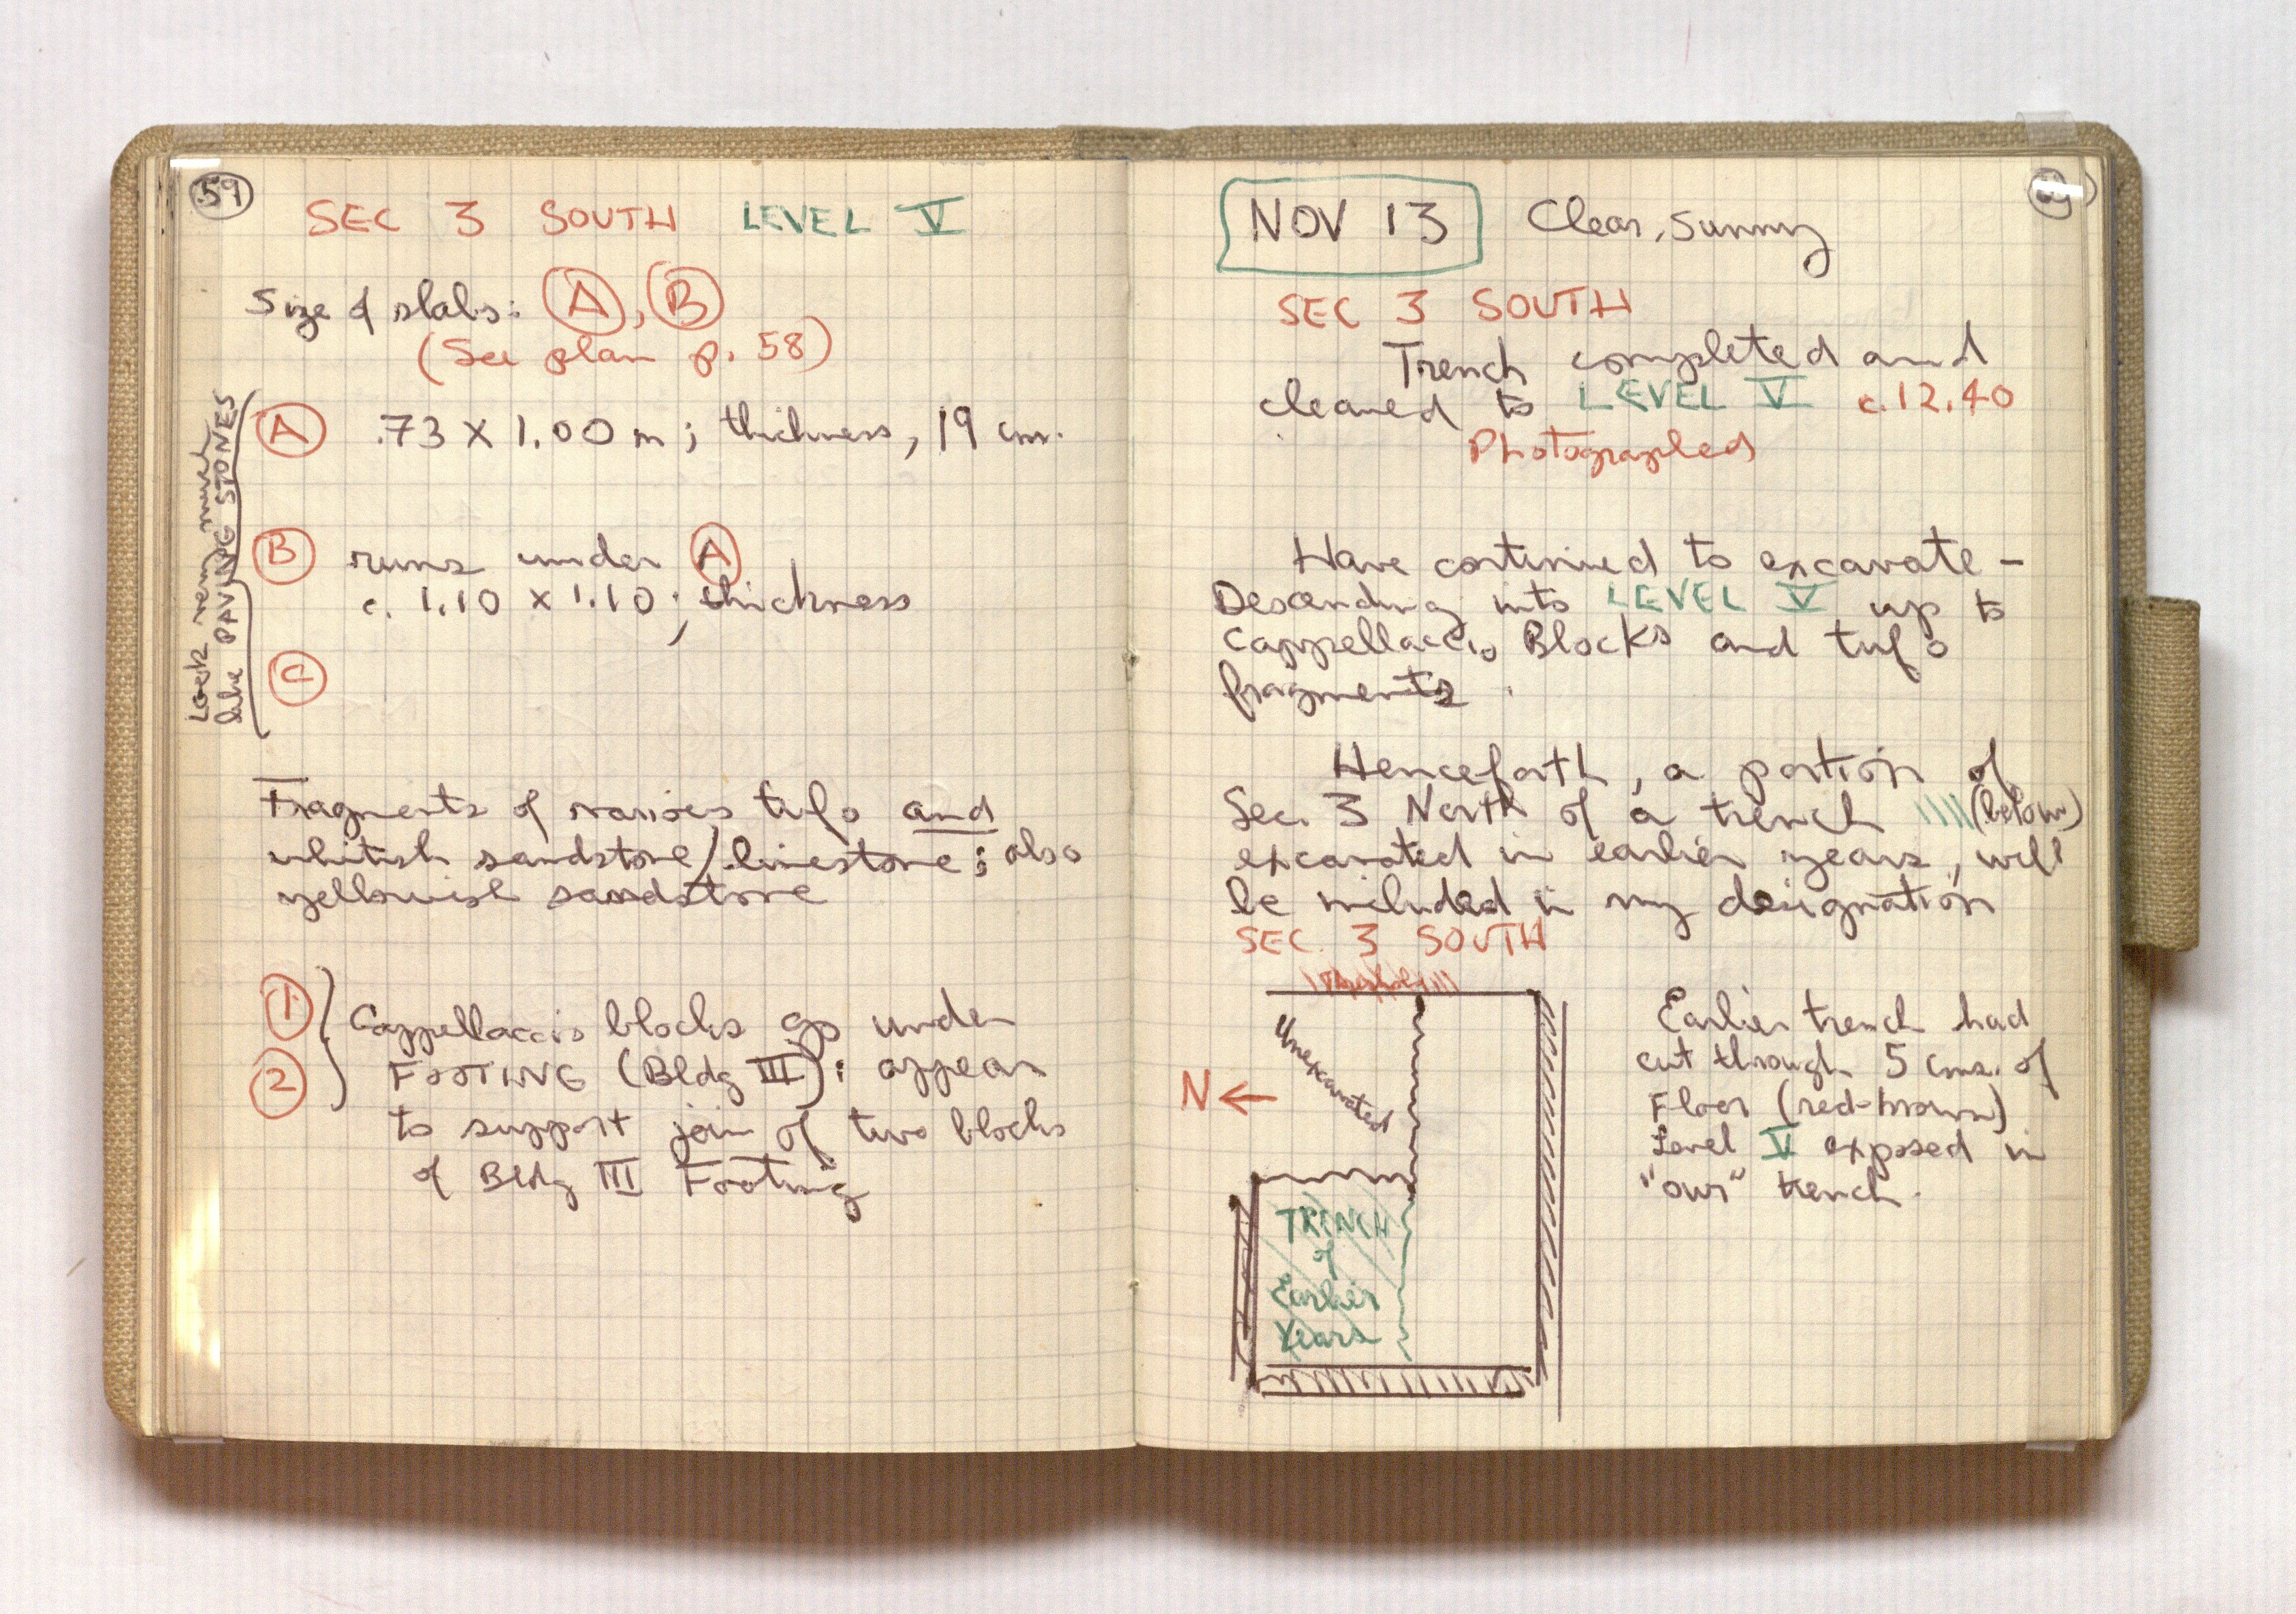 59
SEC 3 SOUTH LEVEL V
Size of slabs: A, B
(See plan p. 58)
Look very much
like PAVING STONES
A .73 X 1.00 m; thickness, 19 cm.
B runs under A
c. 1.10 x 1.10; thickness
C
Fragments of various tufo and
whitish sandstone/limestone; also
yellowish sandstone
1
2
Cappellaccio blocks go under
FOOTING (Bldg III): appear
to support join of two blocks
of Bldg III Footing
NOV 13 Clear, Sunny
SEC 3 SOUTH
Trench completed and
cleaned to LEVEL V c. 12.40
Photographed
Have continued to excavate -
Descending into LEVEL V up to
Cappellaccio Blocks and tufo
fragments.
Henceforth, a portion of
Sec. 3 North of a trench (below)
excavated in earlier years, will
be included in my designation
SEC. 3 SOUTH
Unexcavated
N
TRENCH
of
Earlier
Years
Earlier trench had
cut through 5 cms. of
Floor (red-brown)
Level V exposed in
"our" trench.